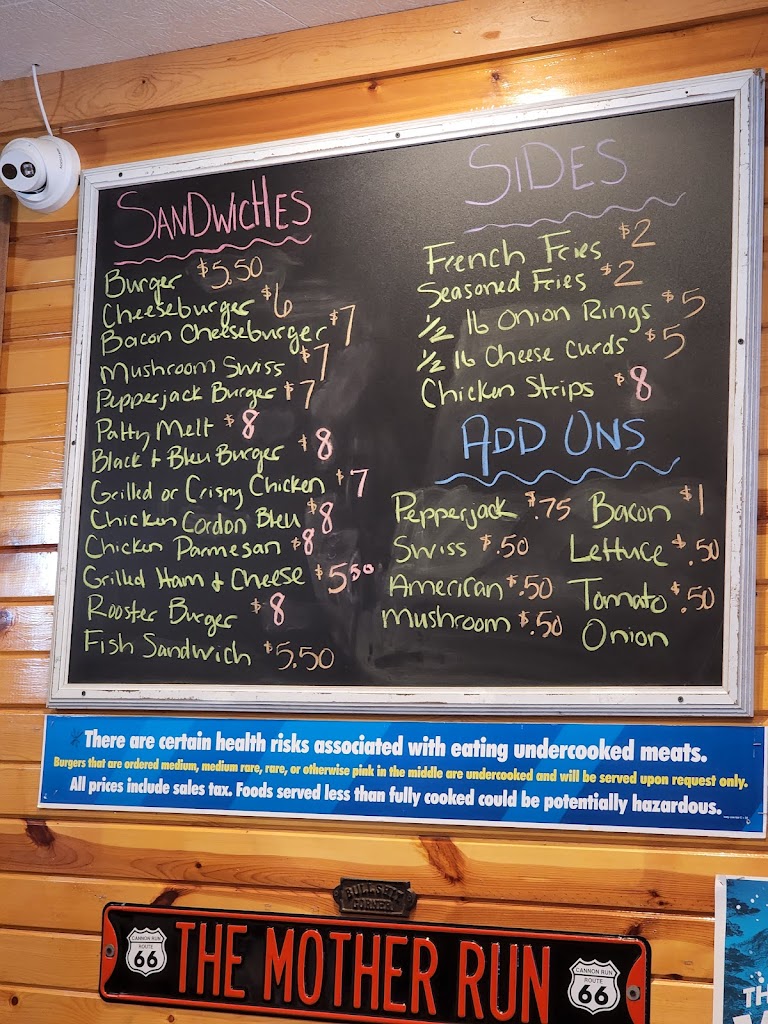 SANDWICHES
Burger $5.50
Cheeseburger $6
Bacon Cheeseburger $7
Mushroom Swiss $7
Pepperjack Burger $7
Patty Melt $8
Black & Bleu Burger $8
Grilled or Crispy Chicken $7
Chicken Cordon Bleu $8
Chicken Parmesan $8
Grilled Ham & Cheese $5.50
Rooster Burger $8
Fish Sandwich $5.50
SIDES
French Fries $2
Seasoned Fries $2
1/2 lb Onion Rings $5
1/2 lb Cheese Curds $5
Chicken Strips $8
ADD ONS
Pepperjack $.75
Swiss $.50
American $.50
Mushroom $.50
Bacon $1
Lettuce $.50
Tomato $.50
Onion
There are certain health risks associated with eating undercooked meats.
Burgers that are ordered medium, medium rare, rare, or otherwise pink in the middle are undercooked and will be served upon request only.
All prices include sales tax. Foods served less than fully cooked could be potentially hazardous.
BULLSHIT
CORNER
CANNON RUN
ROUTE
66
THE MOTHER RUN
CANNON RUN
ROUTE
66
TH